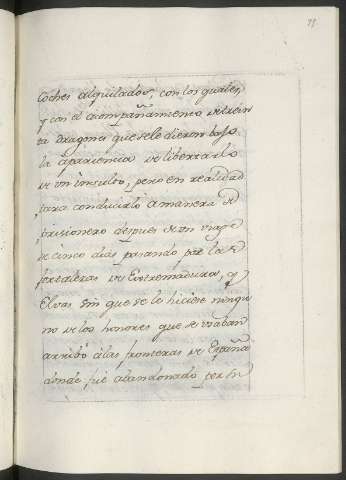 Coches alquilados, con los quales,
y con el acompañamiento de trein
ta Dragones que se le dieron bajo
la apariencia de libertarlo
de un insulto, pero en realidad
para conducirlo a manera de
prisionero despues de un viage
de cinco dias pasando por las
fortalezas de Extremadura, y
Elvas sin que se le hiciese ningu
no de los honores que se usaban
arribó á las fronteras de España
donde fué abandonado per